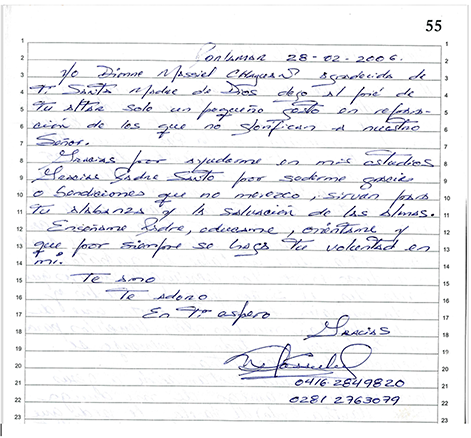 55
Porlamar 28-02-2006.
Yo Dionne Massiel agradecida de
Tí Santa Madre de Dios dejo al pié de
tu altar solo un pequeño gesto en repara-
ción de los que no glorifican a nuestro
Señor.
Gracias por ayudarme en mis estudios
Gracias Padre Santo por cederme gracias
o bendiciones que no merezco, sirvan para
tu alabanza y la salvación de las almas.
Enséñame Padre, educame, oriéntame y
que por siempre se haga tu voluntad en
mí.
Te amo
Te adoro
En Tí espero
Gracias
0416 2849820
0281 2763079